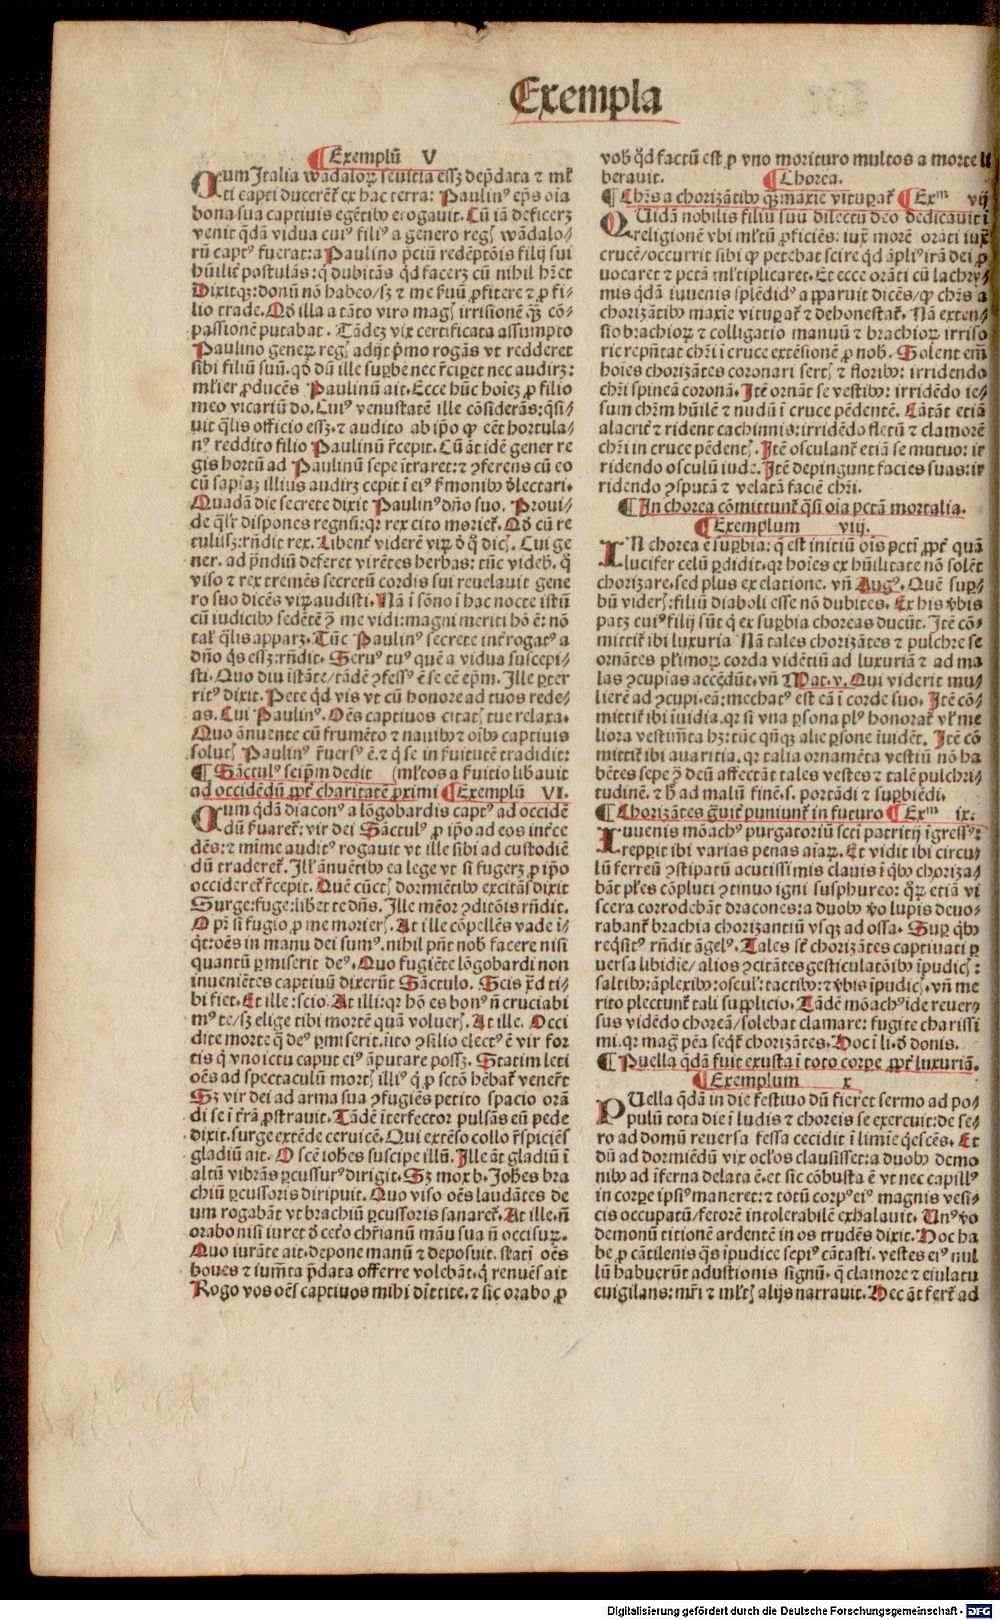 Exempla
¶ Exemplū V
Cum Italia wādaloꝝ seuitia essꝫ dep̄data ⁊ ml̓
ti capti ducerēt̉ ex hac terra: Paulinꝰ ep̄s oīa
bona sua captiuis egētibꝰ erogauit. Cū iā deficerꝫ
venit q̄dā vidua cuiꝰ filiꝰ a genero reg̃ wādalo⸗
rū captꝰ fuerat: a Paulino p̄ciū redēptōis filij sui
hūilit̉ postulās: q̄ dubitās qd̓ facerꝫ cū nihil hr̄et
Dixitqꝫ: donū nō habeo/sꝫ ⁊ me ẜuū ꝓfitere ⁊ ꝓ fi⸗
lio trade. Qd̓ illa a tāto viro mag̃ irrisionē qꝫ cō⸗
passionē putabat. Tādeꝫ vix certificata assumpto
Paulino generꝫ reg̃ adijt p̓mo rogās vt redderet
sibi filiū suū. qd̓ dū ille suꝑbe nec r̓ciꝑet nec audirꝫ:
ml̓ier ꝓducēs Paulinū ait. Ecce hūc hoīeꝫ ꝓ filio
meo vicariū do. Cuiꝰ venustatē ille cōsiderās: q̄si⸗
uit q̄lis officio essꝫ. ⁊ audito ab ip̄o ꝙ eēt hortula⸗
nꝰ reddito filio Paulinū r̓cepit. Cū āt idē gener re
gis hortū ad Paulinū sepe ītraret: ⁊ ꝯferens cū eo
cū sapiaꝫ illius audirꝫ cepit ī eiꝰ ẜmonibꝰ d̓lectari.
Quadā die secrete dixit Paulinꝰ dn̄o suo. Proui⸗
de q̄lr̓ dispones regnū: qꝛ rex cito moriet̉. Qd̓ cū re
tulissꝫ: rn̄dit rex. Libent̉ viderē viꝝ d̓ q̄ dic̃. Cui ge
ner. ad p̄ndiū deferet virētes herbas: tūc videb̃. q̄
viso ⁊ rex tremēs secretū cordis sui reuelauit gene
ro suo dicēs viꝝ audisti. Nā ī sōno ī hac nocte istū
cū iudicibꝰ sedētē ꝯ̄ me vidi: magni meriti hō ē: nō
tal̓ q̄lis apparꝫ. Tūc Paulinꝰ secrete int̓rogatꝰ a
dn̄o q̓s essꝫ: rn̄dit. Seruꝰ tuꝰ quē a vidua suscepi⸗
sti. Quo diu istāte/tādē ꝯfessꝰ ē se eē ep̄m. Ille ꝑter
ritꝰ dixit. Pete qd̓ vis vt cū honore ad tuos rede⸗
as. Cui Paulinꝰ. Oēs captiuos citat̃ tue relaxa.
Quo ānuente cū frumēto ⁊ nauibꝰ ⁊ oībꝰ captiuis
solut̃ Paulinꝰ r̓uersꝰ ē. ⁊ q̓ se in ẜuitutē tradidit:
¶ Sāctulꝰ seip̄m dedit (ml̓tos a ẜuitio libauit
ad occidēdū ꝓpt̉ charitatē ꝓximi ¶ Exemplū VI.
Cum q̄dā diaconꝰ a lōgobardis captꝰ ad occidē
dū ẜuaret̉: vir dei Sāctulꝰ ꝓ ip̄o ad eos int̓ce
dēs: ⁊ mīme auditꝰ rogauit vt ille sibi ad custodiē
dū traderet̉. Ill̓ ānuētibꝰ ea lege vt si fugerꝫ ꝓ ip̄o
occideret̉ r̓cepit. Quē cūct̃ dormiētibꝰ excitās dixit
Surge: fuge: liberet te dn̄s. Ille mēor ꝯditōis rn̄dit.
O pr̄ si fugio ꝓ me morier̃. At ille cōpellēs vade ī⸗
q̓t: oēs in manu dei sumꝰ. nihil pn̄t nob̃ facere nisi
quantū ꝑmiserit deꝰ. Quo fugiēte lōgobardi non
inuenientes captiuū dixerūt Sāctulo. Scis qd̓ ti⸗
bi fiet. Et ille: scio. At illi: qꝛ hō es bonꝰ n̄ cruciabi
mꝰ te/sꝫ elige tibi mortē quā voluer̃. At ille. Occi
dite morte q̄ deꝰ ꝑmiserit. īito ꝯsilio electꝰ ē vir for
tis q̄ vno ictu caput eiꝰ āputare possꝫ. Statim leti
oēs ad spectaculū mort̃ illiꝰ q̓ ꝓ sctō hēbat̉ venerūt
Sꝫ vir dei ad arma sua ꝯfugiēs petito spacio orā
di se ī t̓rā ꝓstrauit. Tādē īterfector pulsās eū pede
dixit. surge extēde ceruicē. Qui extēso collo r̓spiciēs
gladiū ait. O sctē ioh̄es suscipe illū. Ille āt gladiū ī
altū vibrās ꝑcussurꝰ dirigit. Sꝫ mox b. Joh̄es bra
chiū ꝑcussoris diripuit. Quo viso oēs laudātes de
um rogabāt vt brachiū ꝑcussoris sanaret̉. At ille. n̄
orabo nisi iuret d̓ ceto̓ chr̄ianū māu sua n̄ occisuꝝ.
Quo iurāte ait. depone manū ⁊ deposuit. statī oēs
boues ⁊ iumēta p̄data offerre volebāt. q̓ renuēs ait
Rogo vos oēs captiuos mihi dīttite. ⁊ sic orabo ꝓ
vob̃ qd̓ factū est. ꝓ vno morituro multos a morte li
berauit. ¶ Chorea.
¶ Chr̄s a chorizātibꝰ qꝫmaxie vituꝑat̉ ¶ Exᵐ vij
Quidā nobilis filiū suū dilectū deo dedicauit ī
religionē vbi ml̓tū ꝓficiēs: iuxͣ morē orāti iuxͣ
crucē/occurrit sibi ꝙ petebat scire qd̓ āpliꝰ irā dei ꝓ
uocaret ⁊ pctā ml̓tiplicaret. Et ecce orāti cū lachry⸗
mis q̄dā iuuenis splēdidꝰ apparuit dicēs/ꝙ chr̄s a
chorizātibꝰ maxie vituꝑat̉ ⁊ dehonestat̉. Nā exten⸗
sio brachioꝝ ⁊ colligatio manuū ⁊ brachioꝝ irriso
rie rep̄ntat chr̄i ī cruce extēsionē ꝓ nob̃. Solent eīn̄
hoīes chorizātes coronari sert̃ ⁊ floribꝰ: irridendo
chr̄i spineā coronā. Itē ornāt se vestibꝰ: irridēdo ie⸗
sum chr̄m hūilē ⁊ nudū ī cruce pēdentē. Cātāt etiā
alacrit̉ ⁊ rident cachinnis: irridēdo fletū ⁊ clamorē
chr̄i in cruce pēdent̃. Itē osculant̉ etiā se mutuo: ir
ridendo osculū iude. Itē depingunt facies suas: ir
ridendo ꝯsputā ⁊ velatā faciē chr̄i.
¶ In chorea cōmittunt̉ q̄si oīa pctā mortalia.
¶ Exemplum viij.
IN chorea ē suꝑbia: q̄ est initiū oīs pcti ꝓpt̉ quā
lucifer celū ꝑdidit. qꝛ hoīes ex hūilitate nō solēt
chorizare. sed plus ex elatione. vn̄ Augꝰ. Quē suꝑ⸗
bū vider̃: filiū diaboli esse nō dubites. Ex his v̓bis
patꝫ cuiꝰ filij sūt q̓ ex suꝑbia choreas ducūt. Itē cō⸗
mittit̉ ibi luxuria Nā tales chorizātes ⁊ pulchre se
ornātes pl̓imoꝝ corda vidētiū ad luxuriā ⁊ ad ma
las ꝯcupias accēdūt. vn̄ Mat. v. Qui viderit mu⸗
lierē ad ꝯcupi. eā: mechatꝰ est eā ī corde suo. Itē cō⸗
mittit̉ ibi īuidia. qꝛ si vna ꝑsona plꝰ honorat̉ vl̓ me
liora vestimēta hꝫ: tūc qn̄qꝫ alie ꝑsone īuidēt. Itē cō
mittit̉ ibi auaritia. qꝛ talia ornamēta vestiū nō ha
bētes sepe ꝯ̄ deū affectāt tales vestes ⁊ talē pulchri⸗
tudinē. ⁊ h̓ ad malū finē. s. portādi ⁊ suꝑbiēdi.
¶ Chorizātes ḡuit̉ puniunt̉ in futuro ¶ Exᵐ ix.
Iuuenis mōachꝰ purgatoriū scti patritij īgressꝰ:
reꝑꝑit ibi varias penas aīaꝝ. Et vidit ibi circu⸗
lū ferreū ꝯstipatū acutissimis clauis ī qͦ choriza⸗
bāt pl̓es cōpluti ꝯtinuo igni susphureo: qꝛ etiā vi
scera corrodebāt dracones: a duobꝰ v̓o lupis deuo⸗
rabant̉ brachia chorizantiū vsqꝫ ad ossa. Suꝑ qͦ
req̓sitꝰ rn̄dit āgelꝰ. Tales st̓ chorizātes captiuati ꝑ
uersa libidīe/alios ꝯcitātes gesticulatōibꝰ īpudic̃:
saltibꝰ: āplexibꝰ: oscul̓: tactibꝰ: ⁊ v̓bis īpudic̃. vn̄ me
rito plectunt̉ tali supplicio. Tādē mōachꝰ īde reuer⸗
sus vidēdo choreā/solebat clamare: fugite charissi
mi. qꝛ mag̃ pēa seq̓t̉ chorizātes. Hoc ī li. d̓ donis.
¶ Puella q̄dā fuit exusta ī toto corꝑe ꝓpt̉ luxuriā.
¶ Exemplum x
PUella q̄dā in die festiuo dū fieret sermo ad po⸗
pulū tota die ī ludis ⁊ choreis se exercuit: de se⸗
ro ad domū reuersa fessa cecidit ī limīe q̓escēs. Et
dū ad dormiēdū vix ocl̓os clausisset: a duobꝰ demo
nibꝰ ad īferna delata ē. et sic cōbusta ē vt nec capillꝰ
in corꝑe ip̄siꝰ maneret: ⁊ totū corpꝰ eiꝰ magnis vesi⸗
cis occupatū/fetorē intolerabilē exhalauit. Unꝰ v̓o
demonū titionē ardentē in os trudēs dixit. Hoc ha
be ꝓ cātilenis q̄s īpudice sepiꝰ cātasti. vestes eiꝰ nul
lū habuerūt adustionis signū. q̄ clamore ⁊ eiulatu
euigilans: mr̄i ⁊ ml̓t̃ alijs narrauit. Hec āt fert̉ ad
Digitalisierung gefördert durch die Deutsche Forschungsgemeinschaft - DFG